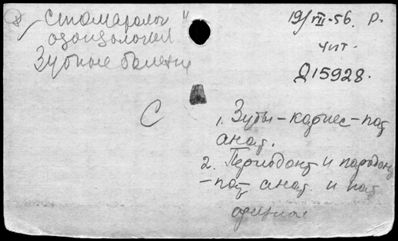 Стоматолог
одонтология
Зубные болезни
19/VII-56. р.
чит.
Д15928.
С
1. Зубы-кариес-пат
анат.
2. Периодонт и пародонт
-пат анат. и пат